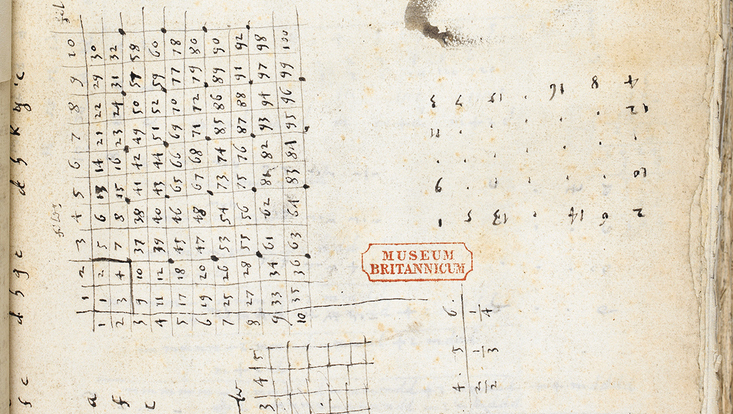 d h g c d h k g c
1 2 3 4 5 6 7 8 9 10
1 1 2 5 6 13 14 21 22 29 30
2 3 4 7 8 15 16 23 24 31 32
3 9 10 37 38 41 42 49 50 57 58
4 11 12 39 40 43 44 51 52 59 60
5 17 18 45 46 65 66 69 70 77 78
6 19 20 47 48 67 68 71 72 79 80
7 25 26 53 54 73 74 85 86 89 90
8 27 28 55 56 75 76 87 88 91 92
9 33 34 61 62 81 82 93 94 97 98
10 35 36 63 64 83 84 95 96 99 100
a
f
c
3 4 5
MUSEUM
BRITANNICUM
4. 5 6.
2 1 1
2 3 4
2 6 14 13 5 1
10 9
12 11
4 8 16 15 7 3